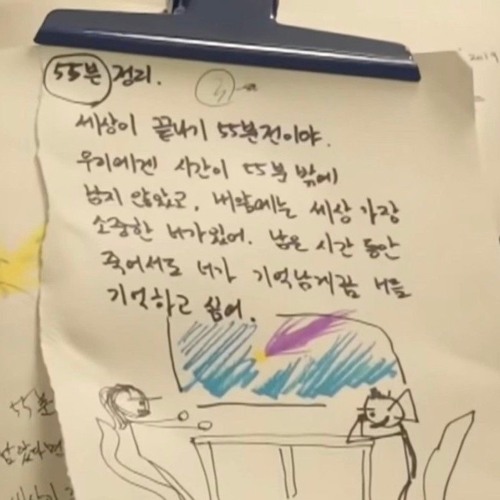 55분 정리.
세상이 끝나기 55분전이야.
우리에겐 시간이 55분 밖에
남지 않았고, 내앞에는 세상 가장
소중한 너가있어. 남은 시간 동안
죽어서도 너가 기억남게끔 너를
기억하고 싶어.
2019
55분